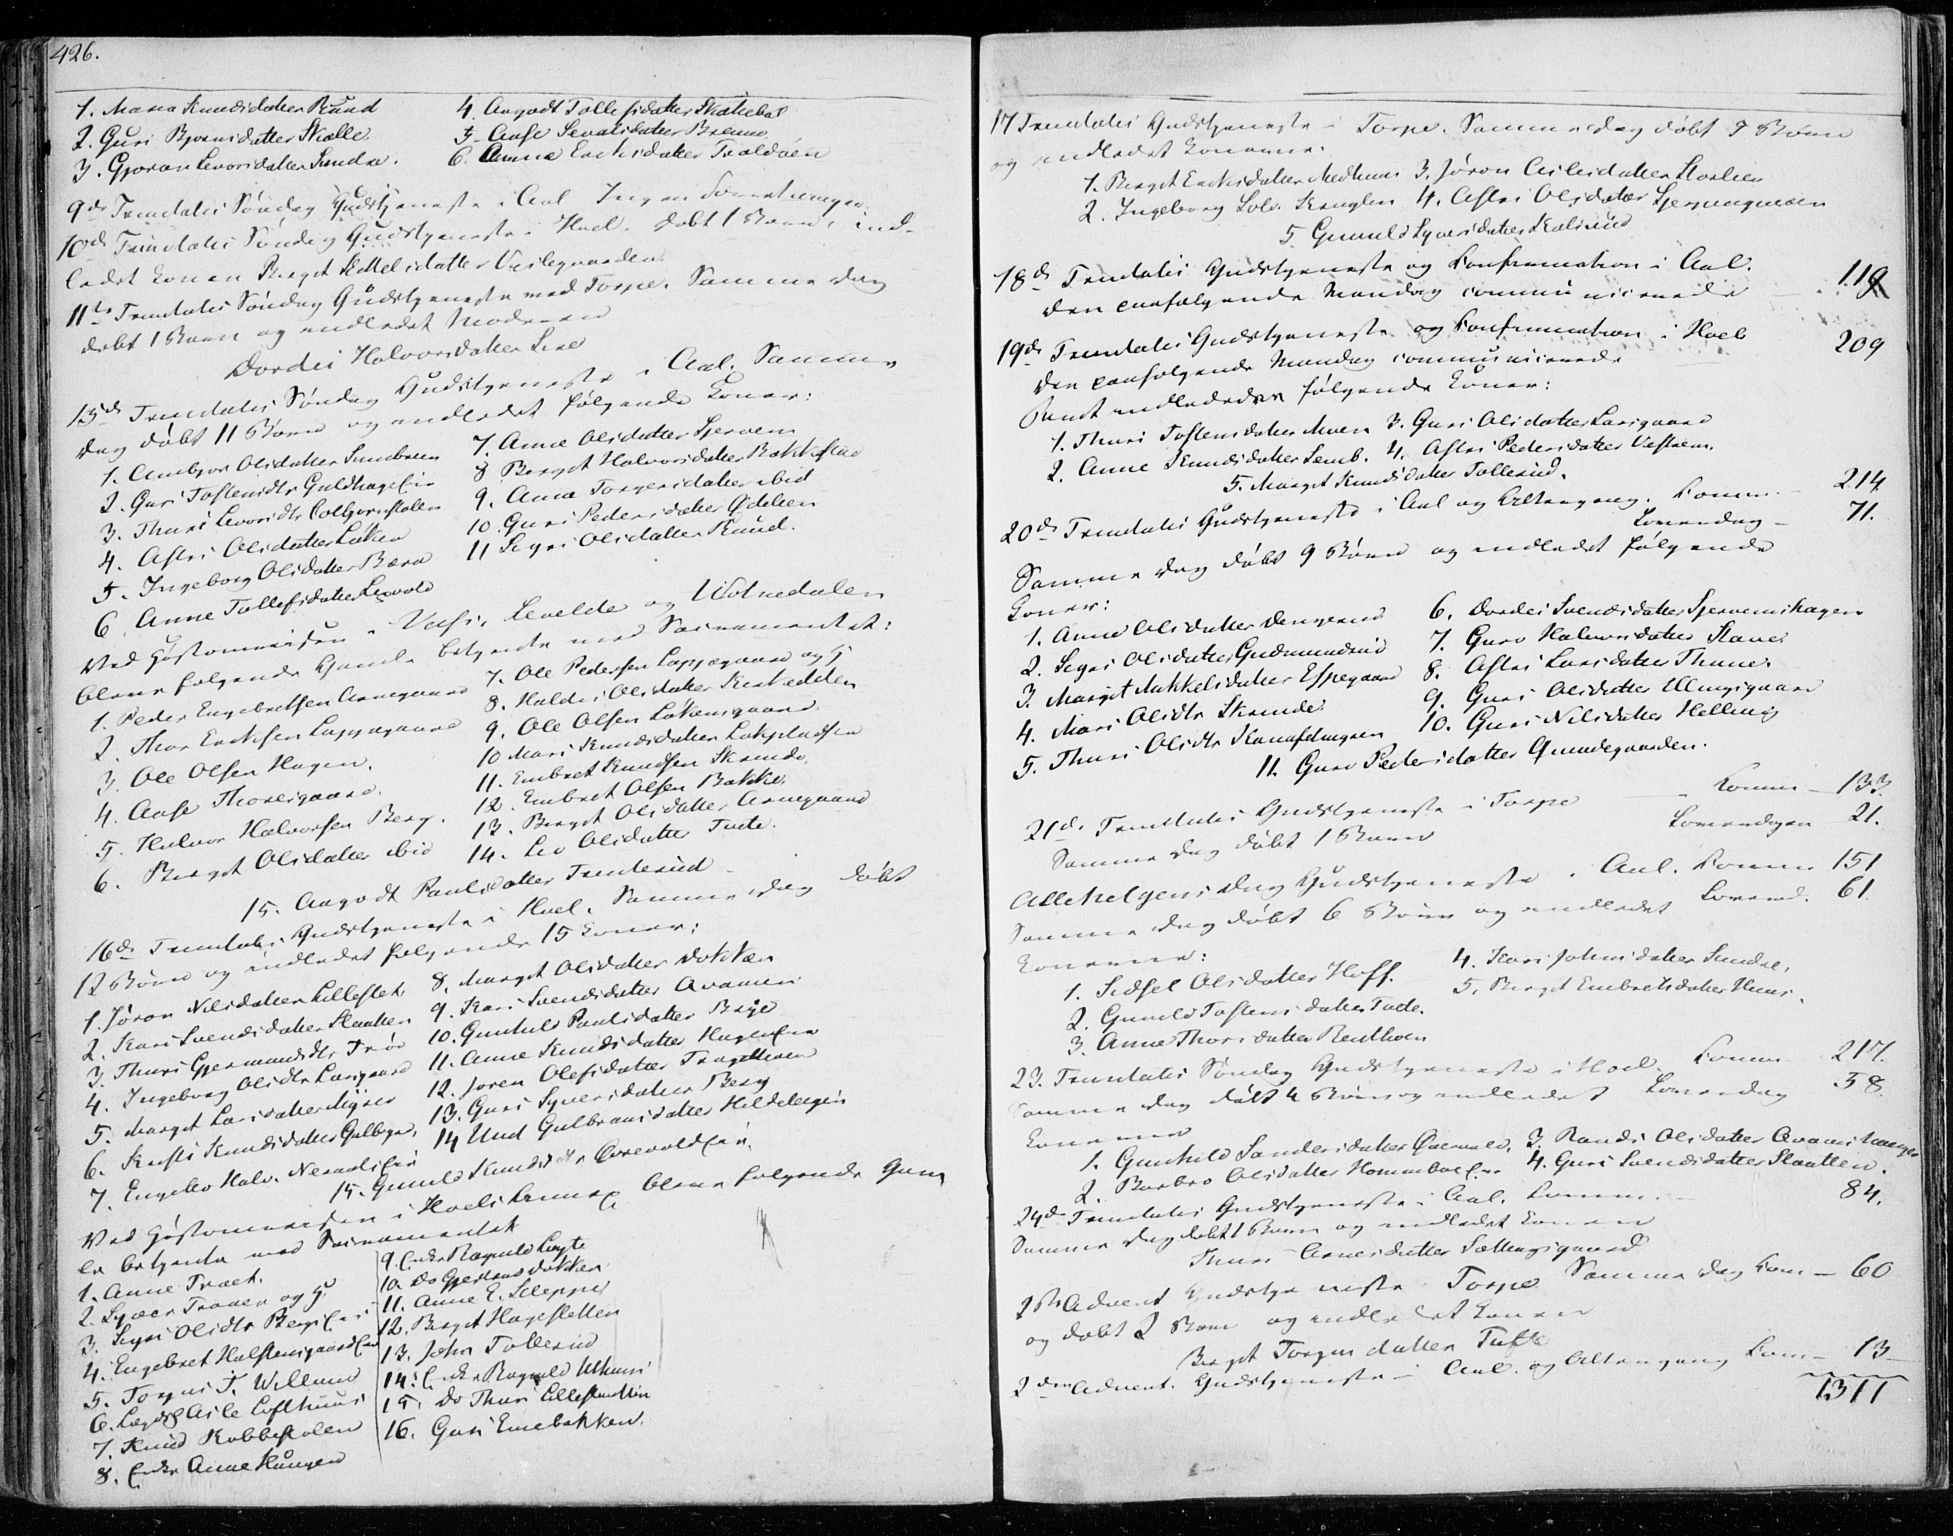 426.
1. Maria Knudsdatter Ruud
2. Guri Bjørnsdatter Skalle
3. Gjøran Levorsdatter Sundre.
4. Aagodt Tollefsdatter Skattebøl
5. Aase Sevatsdatter Brenno
6. Anne Eriksdatter Traldaen
9de Trinitatis Søndag Gudstjeneste i Aal Ingen Forretninger.
10de Trinitatis Søndag Gudstjeneste i Hoel. Døbt 1 Barn, ind-
ledet Konen Birget Kittelsdatter Veslegaarden
11te Trinitatis Søndag Gudstjeneste med Torpe. Samme Dag
døbt 1 Barn og indledet Moderen
Dordei Halvorsdatter Lise
15de Trinitatis Søndag Gudstjeneste i Aal. Samme
Dag døbt 11 Børn og indledet følgende Koner:
1. Ambjør Olsdatter Sundbreen
2. Guri Tostensdtr Guldhagen
3. Thuri Levorsdtr
4. Astri Olsdatter Løken
5. Ingeborg Olsdatter Bæra
6. Anne Tollefsdatter Leqvold
7. Anne Olsdatter Sjerven
8 Birget Halvorsdatter Bakkestad
9. Anne Torgersdatter ibid
10. Guri Pedersdatter Ødelien
11 Sigri Olsdatter Ruud.
Ved Høstomreisen i Vats, Levelde og Votnedalen
bleve følgende Gamle betjente med Sacramentet:
1. Peder Engebretsen Arnegaard
2. Thor Eriksen Lappegaard
3. Ole Olsen Hagen.
4. Aase Thoresgaard.
5. Halvor Halvorsen Berg.
6. Birget Olsdatter ibid
7. Ole Pedersen Lappegaard og H
8. Haldis Olsdatter
9. Ole Olsen Løkensgaard
10 Mari Knudsdatter Løkpladsen
11. Embret Knudsen Skrinde.
12. Embret Olsen Bakke.
13. Birget Olsdatter Arnegaard
14. Liv Olsdatter Tufte.
15. Aagodt Paulsdatter Trintesrud
16de Trinitatis Gudstjeneste i Hoel. Samme Dag døbt
12 Børn og indledet følgende 15 Koner:
1. Jøran Nilsdatter Lilleslet
2. Kari Svendsdatter Slaatten
3. Thuri Gjermundsdtr Trøo
4. Ingeborg Olsdtr Larsgaard
5. Margit Larsdatter Myren
6. Kristi Knudsdatter Gulbge.
7. Engebor Halv. Neraal
8. Margit Olsdatter Dokken
9. Kari Svendsdatter Avamen
10. Gunhild Paulsdatter Brye
11. Anne Knudsdatter Hagen
12. Jøren Olefsdatter Tragethoen
13. Guri Syversdatter Berg
14 Und Gulbransdatter Hildebergen
15. Gunild Knudsdtr Ørevold
Ved Høstomreisen i Hoels Annex bleve følgende Gam
le betjente med Sacramentet
1. Anne Traet.
2. Syver Traaen og H.
3. Sigri Olsdtr Berg
4. Engebret Halstensgaard
5. Torger T. Villand
6. Lægdsl Asle Lofthuus
7. Knud Kobbestolen
8. Enke Anne Haugen
9. Enke Ragnild Lægte
10. Do Gjertrud Dokken
11. Anne E. Sleppe
12. Birget Hagesletten
13. John Tollerud
14. Enke Ragnild Uthuus
15. Do Thuri Lilleslaatten
16. Guri Eneebakken.
17 Trinitatis Gudstjeneste i Torpe. Samme Dag døbt 7 Børn
og indledet Konerne:
1. Birget Eriksdatter Medhuus
2. Ingeborg Solv. Kauglen
3. Jøron Aslesdatter Storlien
4. Astri Olsdatter
5. Gunild Syversdatter Kalsrud
18de Trinitatis Gudstjeneste og Confirmation i Aal.
Den paafølgende Mandag communicerede — 119
19de Trinitatis Gudstjeneste og Confirmation i Hoel
Den paafølgende Mandag communicerede 209
Samt indlededes følgende Koner:
1. Thuri Tostensdatter Moen
2. Anne Knudsdatter Semb.
3. Guri Olsdatter Larsgaard
4. Astri Pedersdatter Vestren.
5. Margit Knudsdatter Tollerud.
20de Trinitatis Gudstjeneste i Aal og Altergang. Comm. — 214
Løverdag — 71.
Samme Dag døbt 9 Børn og indledet følgende
Koner:
1. Anne Olsdatter Dengerud
2. Sigri Olsdatter Gudmundsrud
3. Margit Mikkelsdatter Espegaard
4. Mari Olsdtr Skrinde
5. Thuri Olsdtr
6. Dordei Svendsdatter Sjervenshagen
7. Guro Halvorsdatter Slaae
8. Astri Larsdatter Thune
9. Guri Olsdatter Ellingsgaard
10. Guri Nilsdatter Helling
11. Guro Pedersdatter Grundegaarden.
21de Trinitatis Gudstjeneste i Torpe — Comm. — 133.
Samme Dag døbt 1 Barn Løverdagen 21.
Allehelgensdag Gudstjeneste i Aal. Comm. 151
Samme Dag døbt 6 Børn og indledet Løverd. 61.
Konerne:
1. Sidsel Olsdatter Hoff.
2. Gunild Tostensdatter Tufte.
3. Anne Thorsdatter Renthoen
4. Kari Johnsdatter Sundre,
5. Birget Embretsdatter Huus.
23. Trinitatis Søndag Gudstjeneste i Hoel. Comm. 217.
Samme Dag døbt 4 Børn og indledet Løverdag 58.
Konerne
1. Gunhild Sandersdatter Ørevold.
2. Barbro Olsdatter Hammerbøe
3. Randi Olsdatter Avamshaugen
4. Guri Svendsdatter Slaatten.
24de Trinitatis Gudstjeneste i Aal. Comm. — 84.
Samme Dag døbt 1 Barn og indledet Konen
Thuri Arnesdatter Sattingsgaard
1ste Advent Gudstjeneste i Torpe Samme Dag Com — 60
og døbt 2 Børn og indledet Konen
Birget Torgersdatter Tufte
2den Advent. Gudstjeneste i Aal. og Altergang Com — 13
1311